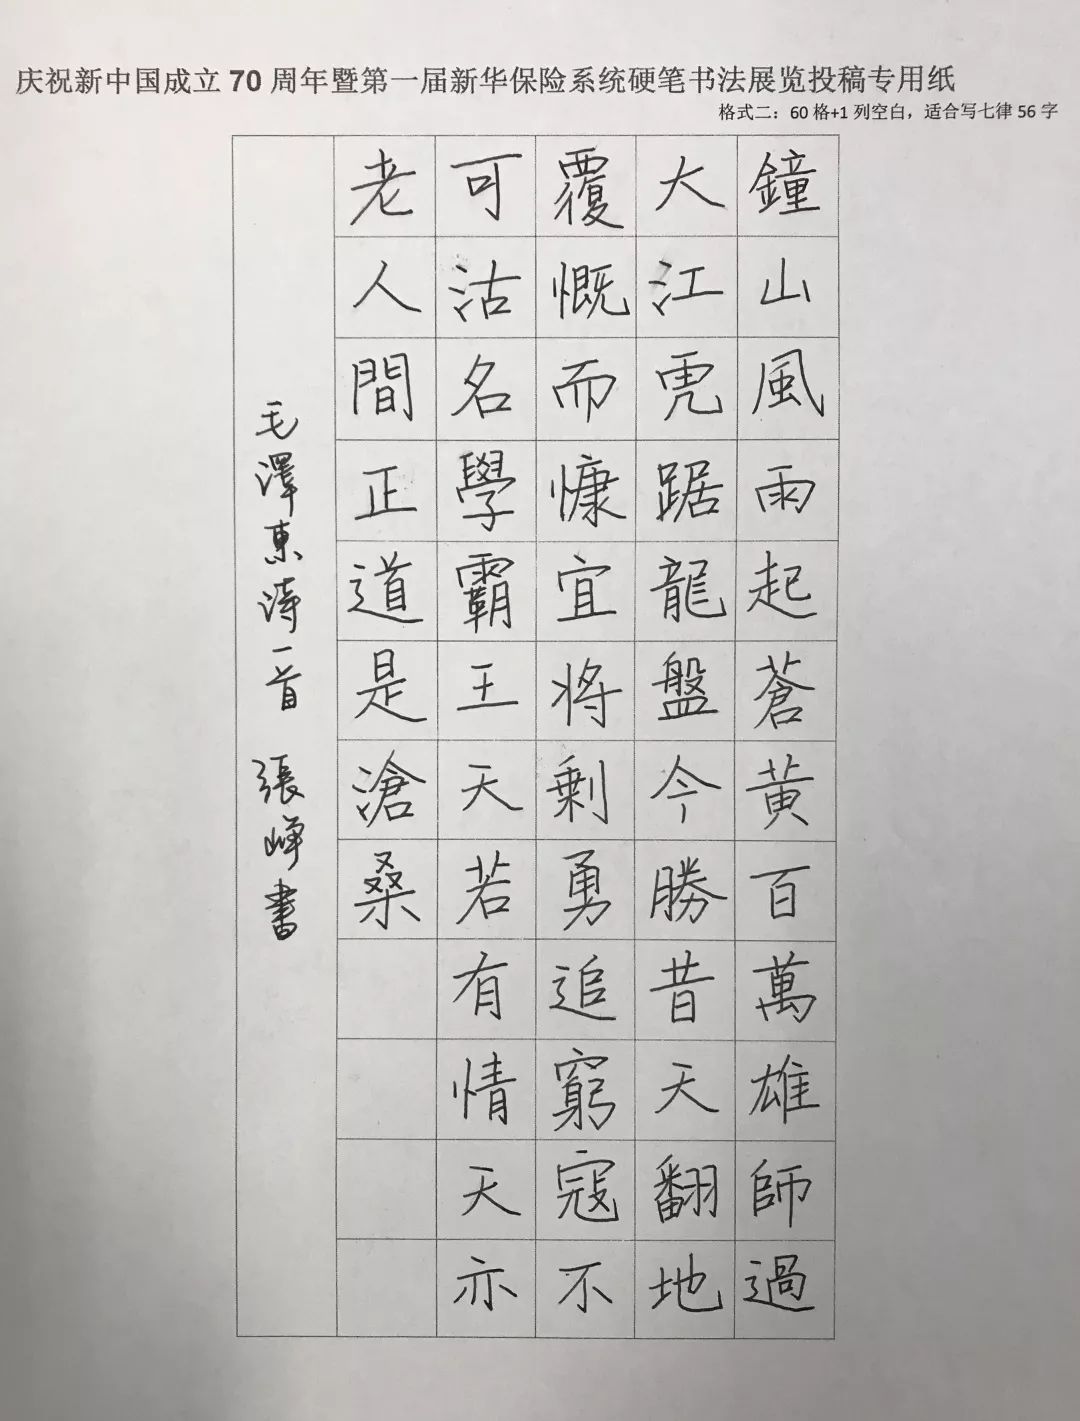 庆祝新中国成立70周年暨第一届新华保险系统硬笔书法展览投稿专用纸
格式二：60格+1列空白，适合写七律56字
鐘山風雨起蒼黄百萬雄師過
大江虎踞龍盤今勝昔天翻地
覆慨而慷宜将剩勇追窮寇不
可沽名學霸王天若有情天亦
老人間正道是滄桑
毛澤東詩一首 張峰書